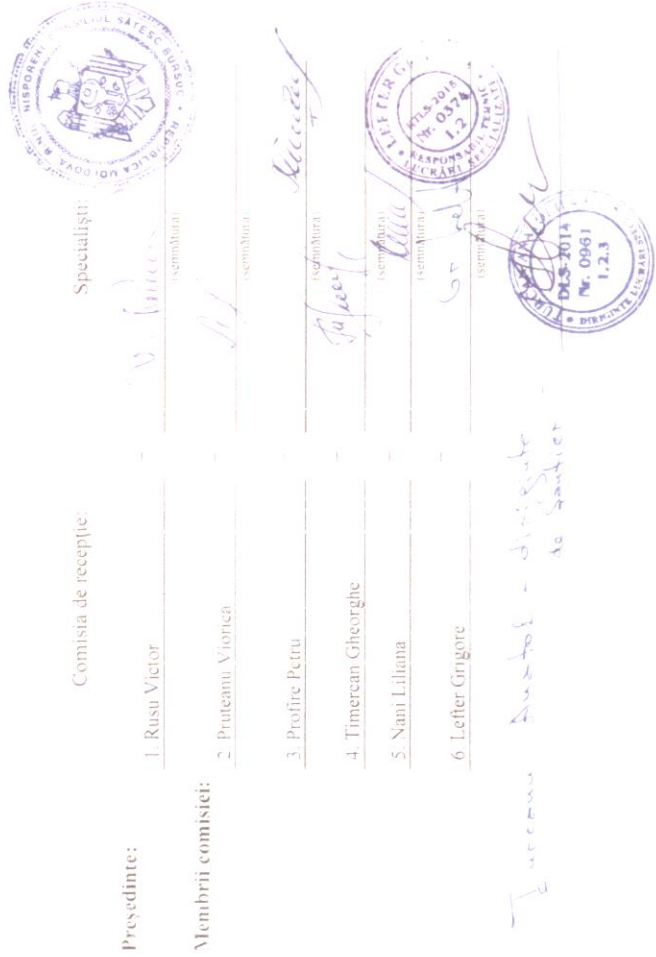 Comisia de recepție: Specialiști:
Președinte:
1. Rusu Victor
(semnătura)
Membrii comisiei:
2. Pruteanu Viorica
(semnătura)
3. Profire Petru
(semnătura)
4. Timercan Gheorghe
5. Nani Liliana
(semnătura)
6. Lefter Grigore
(semnătura)
Turcanu Anatol - diriginte
de Șantier
REPUBLICA MOLDOVA R-NUL NISPORENI CONSILIUL SĂTESC BURSUC
LEFTER G
RTLS-2018
Nr. 0374
1.2
RESPONSABIL TEHNIC
LUCRĂRI SPECIALIZATE
DLS-2014
Nr. 0961
1.2.3
DIRIGINTE LUCRĂRI